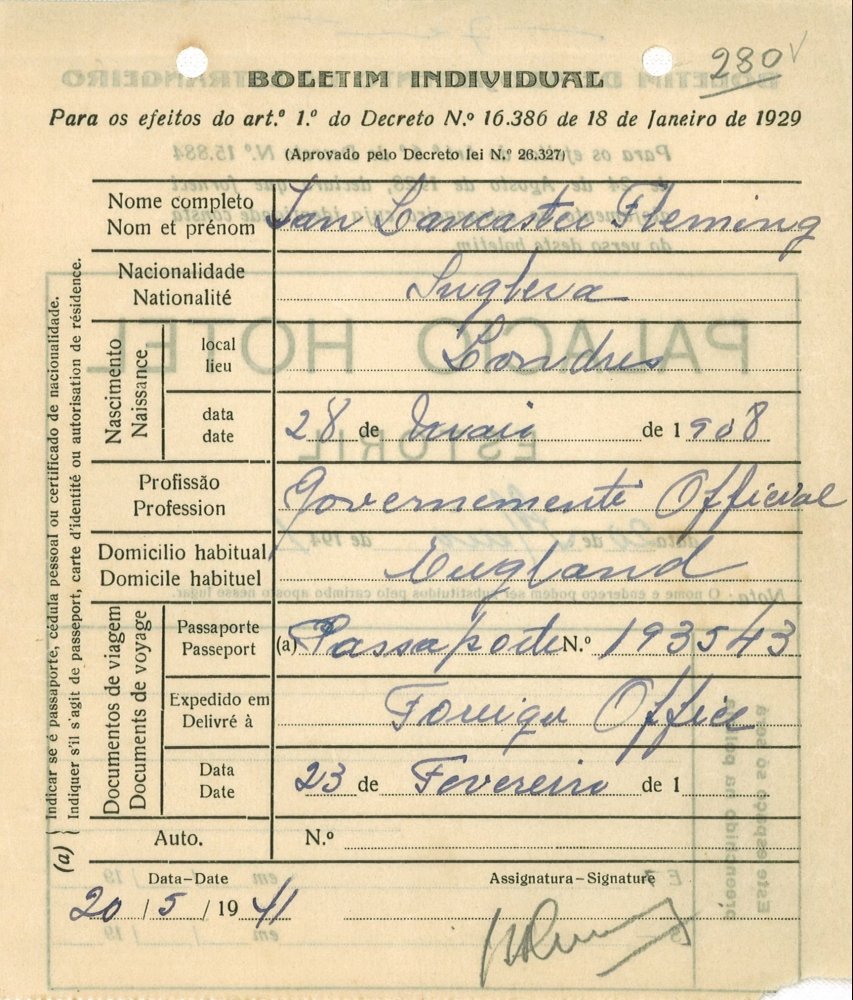 280
BOLETIM INDIVIDUAL
Para os efeitos do art.º 1.º do Decreto N.º 16.386 de 18 de Janeiro de 1929
(Aprovado pelo Decreto lei N.º 26.327)
Nome completo
Nom et prénom
Ian Lancaster Fleming
Nacionalidade
Nationalité
Inglesa
Nascimento
Naissance
local
lieu
Londres
data
date
28 de maio de 1908
Profissão
Profession
Governementi Official
Domicilio habitual
Domicile habituel
England
Documentos de viagem
Documents de voyage
Passaporte
Passeport
(a) Passaporte N.º 193543
Expedido em
Delivré à
Foreign Office
Data
Date
23 de Fevereiro de 1
Auto.
N.º
(a) { Indicar se é passaporte, cédula pessoal ou certificado de nacionalidade.
Indiquer s'il s'agit de passeport, carte d'identité ou autorisation de résidence.
Data-Date
20/5/1941
Assignatura-Signature
PALACIO HOTEL
ESTORIL